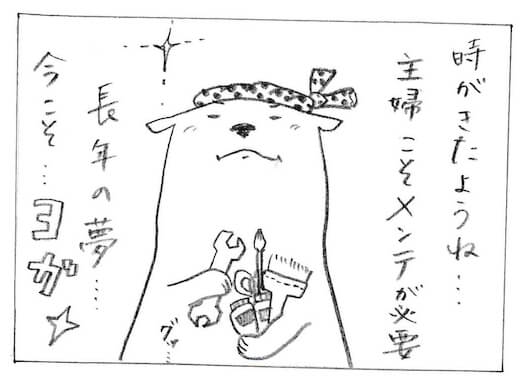 時がきたようね…
主婦こそメンテが必要
長年の夢…
今こそ…ヨガ☆
グッ…